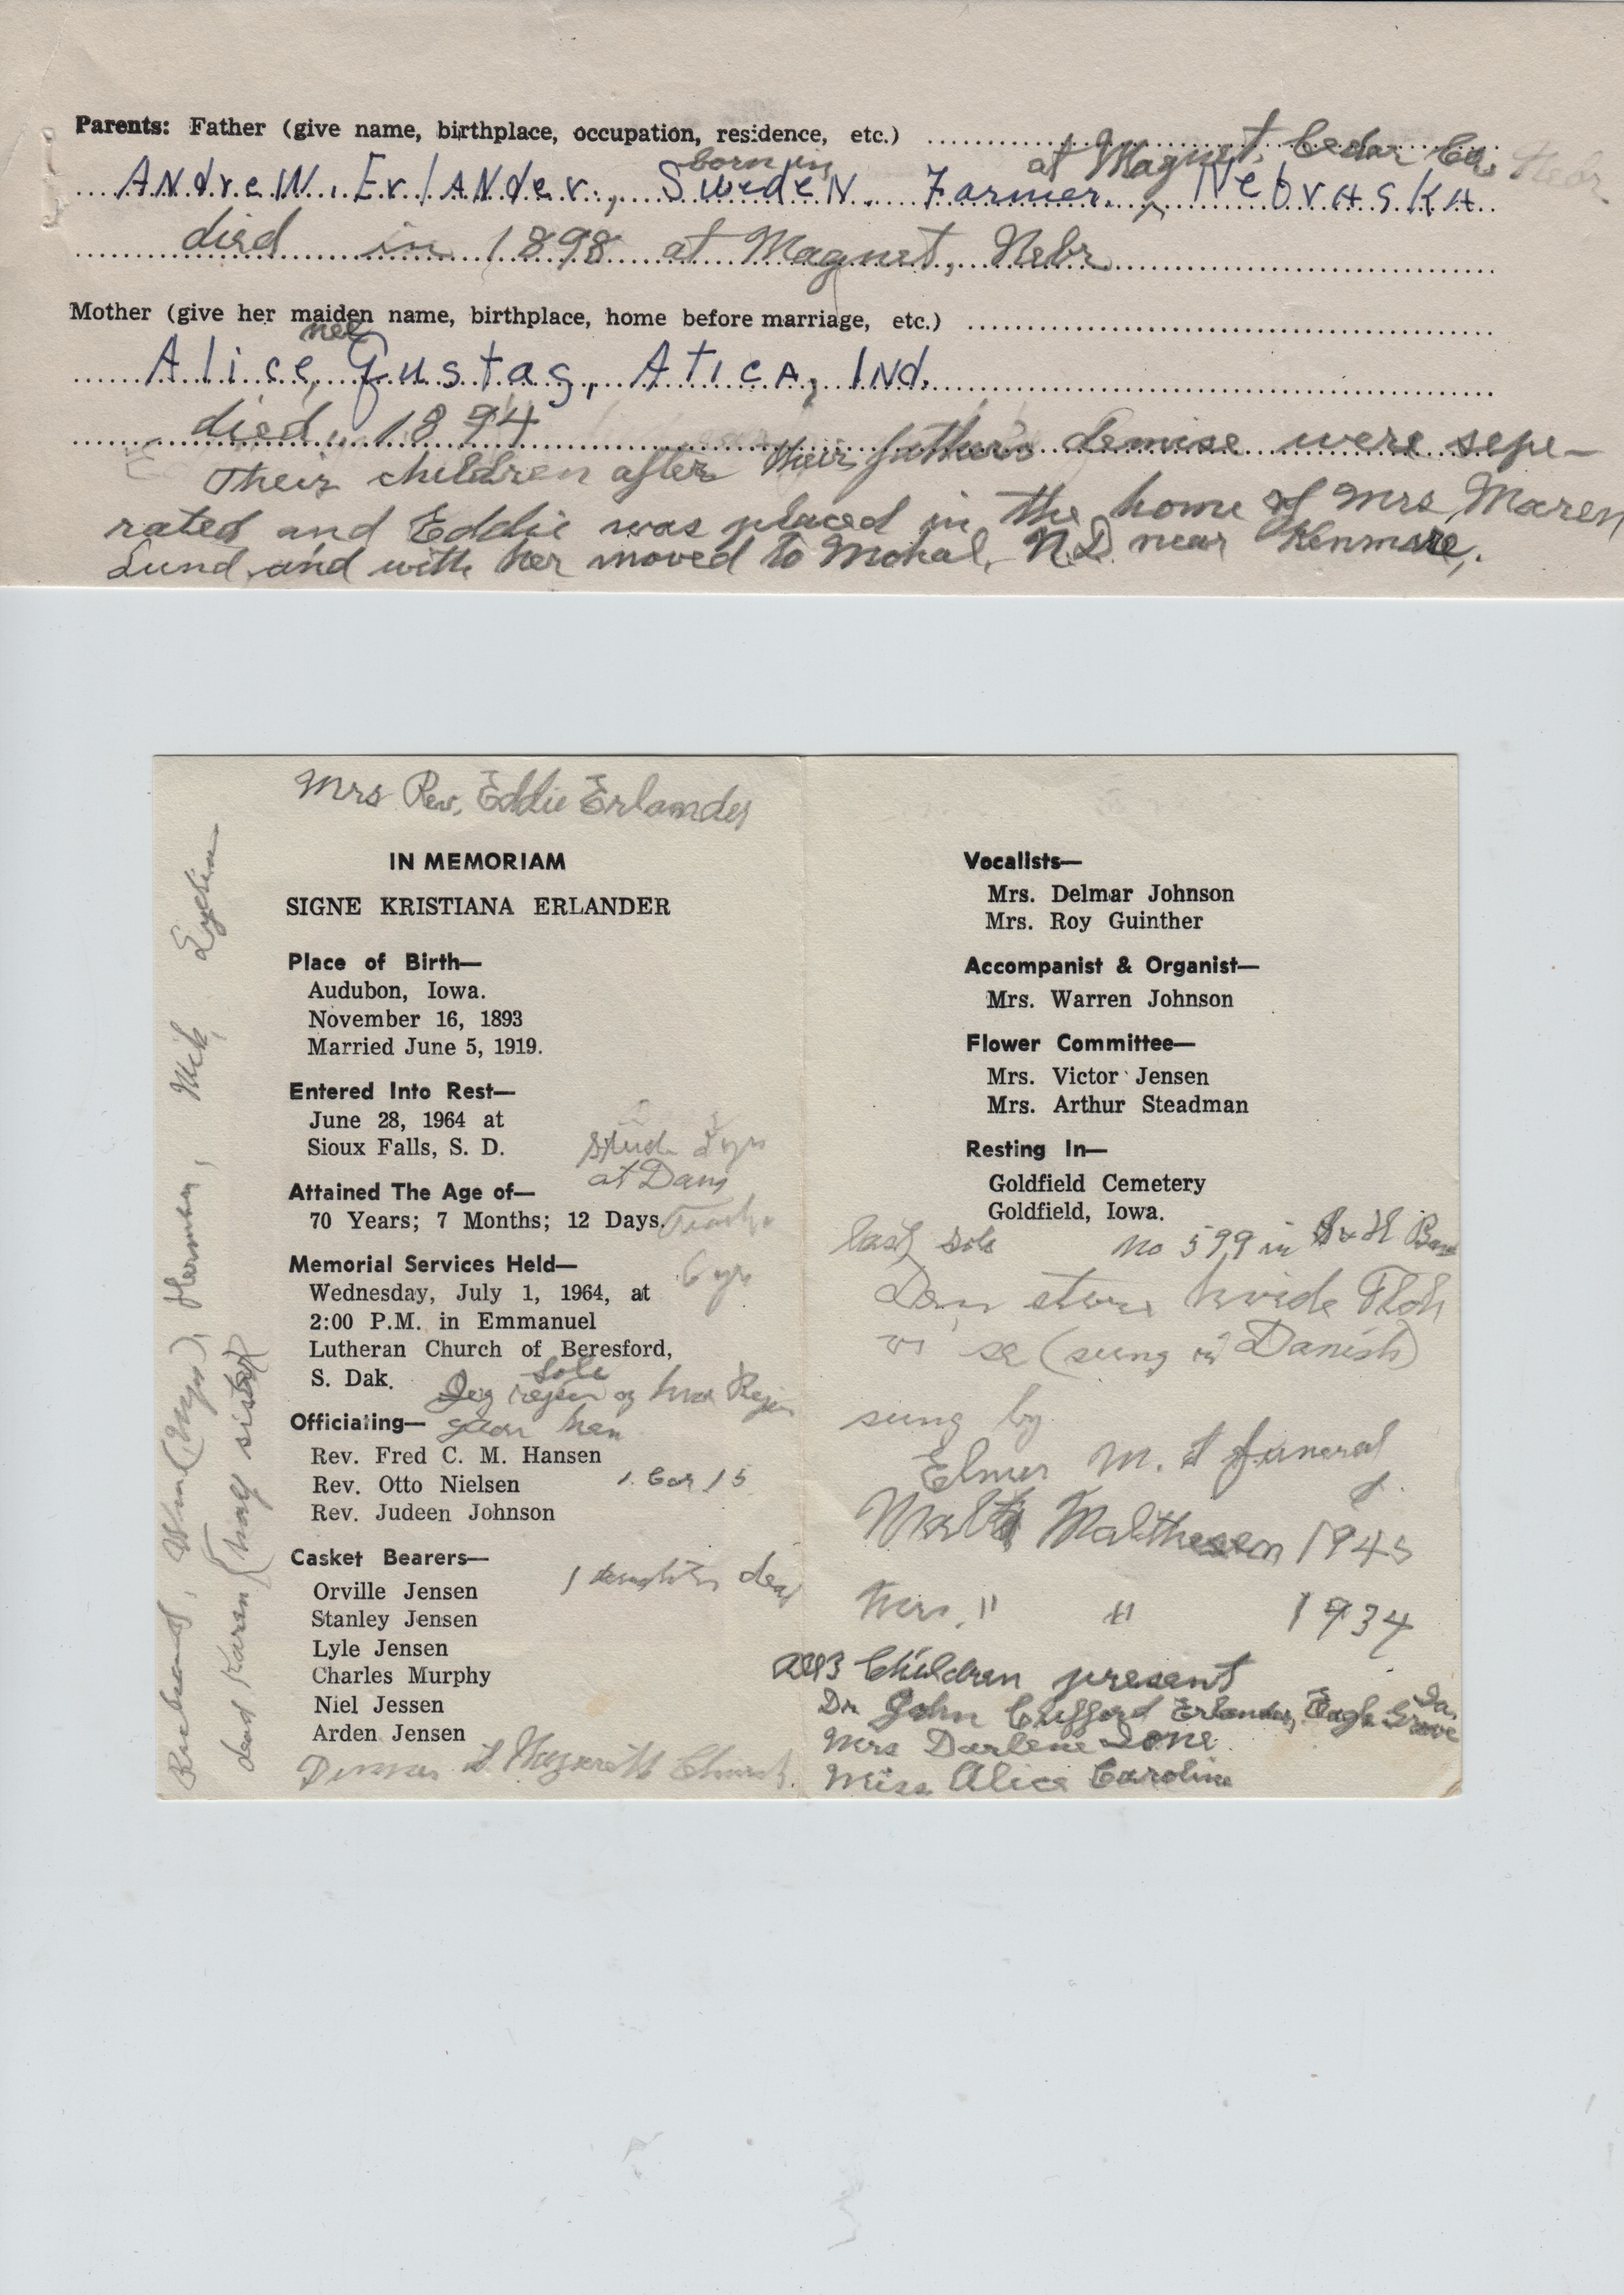 Parents: Father (give name, birthplace, occupation, residence, etc.)
born in at Magnet, Cedar Co., Nebr
Andrew. Erlander., Sweden. Farmer. Nebraska
died in 1898 at Magnet, Nebr
Mother (give her maiden name, birthplace, home before marriage, etc.)
nee
Alice, Gustas, Atica, Ind.
died 1894
Their children after their father's demise were sepe-
rated and Eddie was placed in the home of Mrs Maren
Lund and with her moved to Mohal, N.D. near Kenmare,.
Mrs Rev. Eddie Erlander
IN MEMORIAM
SIGNE KRISTIANA ERLANDER
Place of Birth—
Audubon, Iowa.
November 16, 1893
Married June 5, 1919.
Entered Into Rest—
June 28, 1964 at
Sioux Falls, S. D.
Stud. 2 yrs
at Dana
Attained The Age of—
70 Years; 7 Months; 12 Days.
Teacher
6 yrs
Memorial Services Held—
Wednesday, July 1, 1964, at
2:00 P.M. in Emmanuel
Lutheran Church of Beresford,
S. Dak.
Solo
Jeg rejser og hvor Rejsen
gaar hen
Officiating—
Rev. Fred C. M. Hansen
Rev. Otto Nielsen
Rev. Judeen Johnson
1 Cor 15
Casket Bearers—
Orville Jensen
Stanley Jensen
Lyle Jensen
Charles Murphy
Niel Jessen
Arden Jensen
1 daughter dead
Dinner at Church.
Husband, Herman, Mik, Evelin
dead Karen (half sister)
Vocalists—
Mrs. Delmar Johnson
Mrs. Roy Guinther
Accompanist & Organist—
Mrs. Warren Johnson
Flower Committee—
Mrs. Victor Jensen
Mrs. Arthur Steadman
Resting In—
Goldfield Cemetery
Goldfield, Iowa.
last solo no 599 in
Den store hvide Flok
vi se (sung in Danish)
sung by
Elmer M. at funeral
of
Malthesen 1945
Mrs. " " 1934
All 3 Children present
Dr. John Clifford Erlander, Eagle Grove Ia.
Mrs Darlene Ione
Miss Alice Caroline